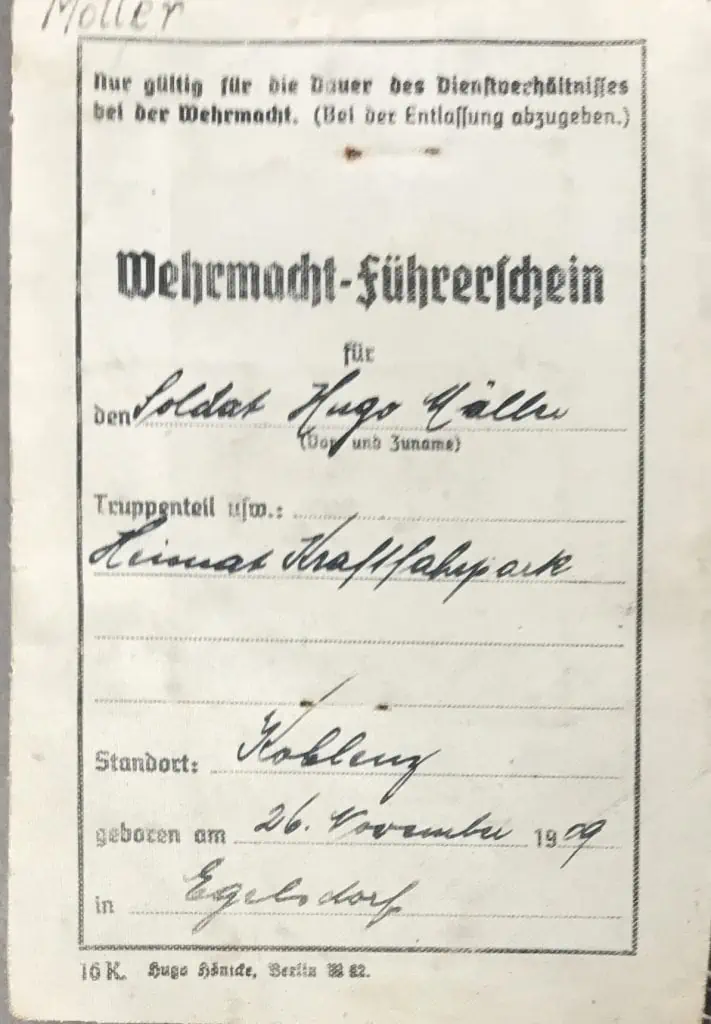 Möller
Nur gültig für die Dauer des Dienstverhältnisses
bei der Wehrmacht. (Bei der Entlassung abzugeben.)
Wehrmacht-Führerschein
für
den Soldat Hugo Möller
(Vor- und Zuname)
Truppenteil usw.:
Heimat Kraftfahrpark
Standort: Koblenz
geboren am 26. November 1909
in Egelsdorf
16 K. Hugo Hänicke, Berlin